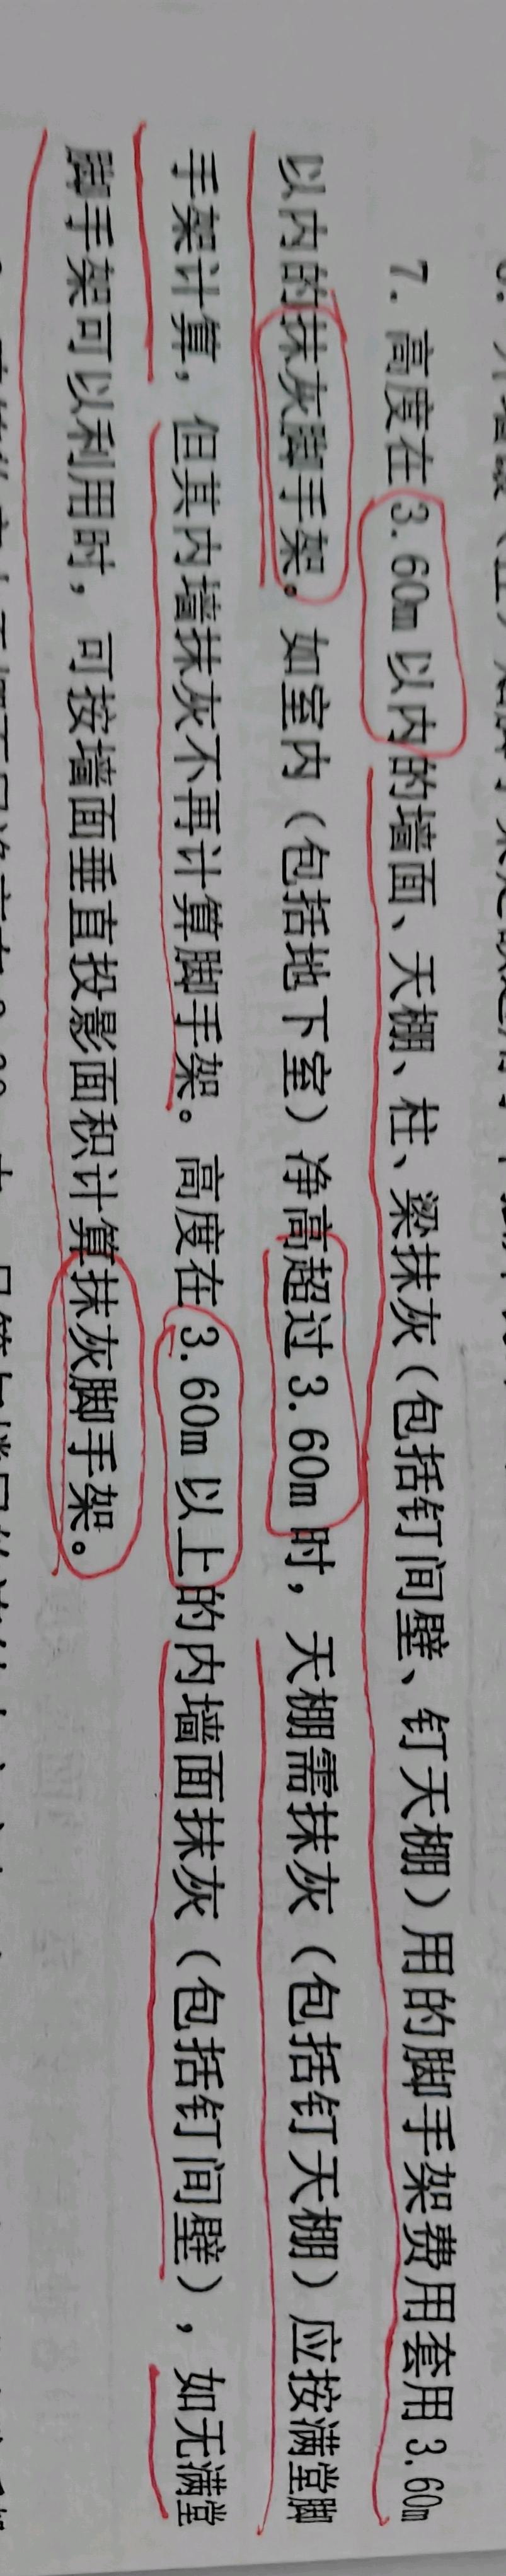 7. 高度在 3.60m 以内的墙面、天棚、柱、梁抹灰（包括钉间壁、钉天棚）用的脚手架费用套用 3.60m
以内的抹灰脚手架。如室内（包括地下室）净高超过 3.60m 时，天棚需抹灰（包括钉天棚）应按满堂脚
手架计算，但其内墙抹灰不再计算脚手架。高度在 3.60m 以上的内墙面抹灰（包括钉间壁），如无满堂
脚手架可以利用时，可按墙面垂直投影面积计算抹灰脚手架。